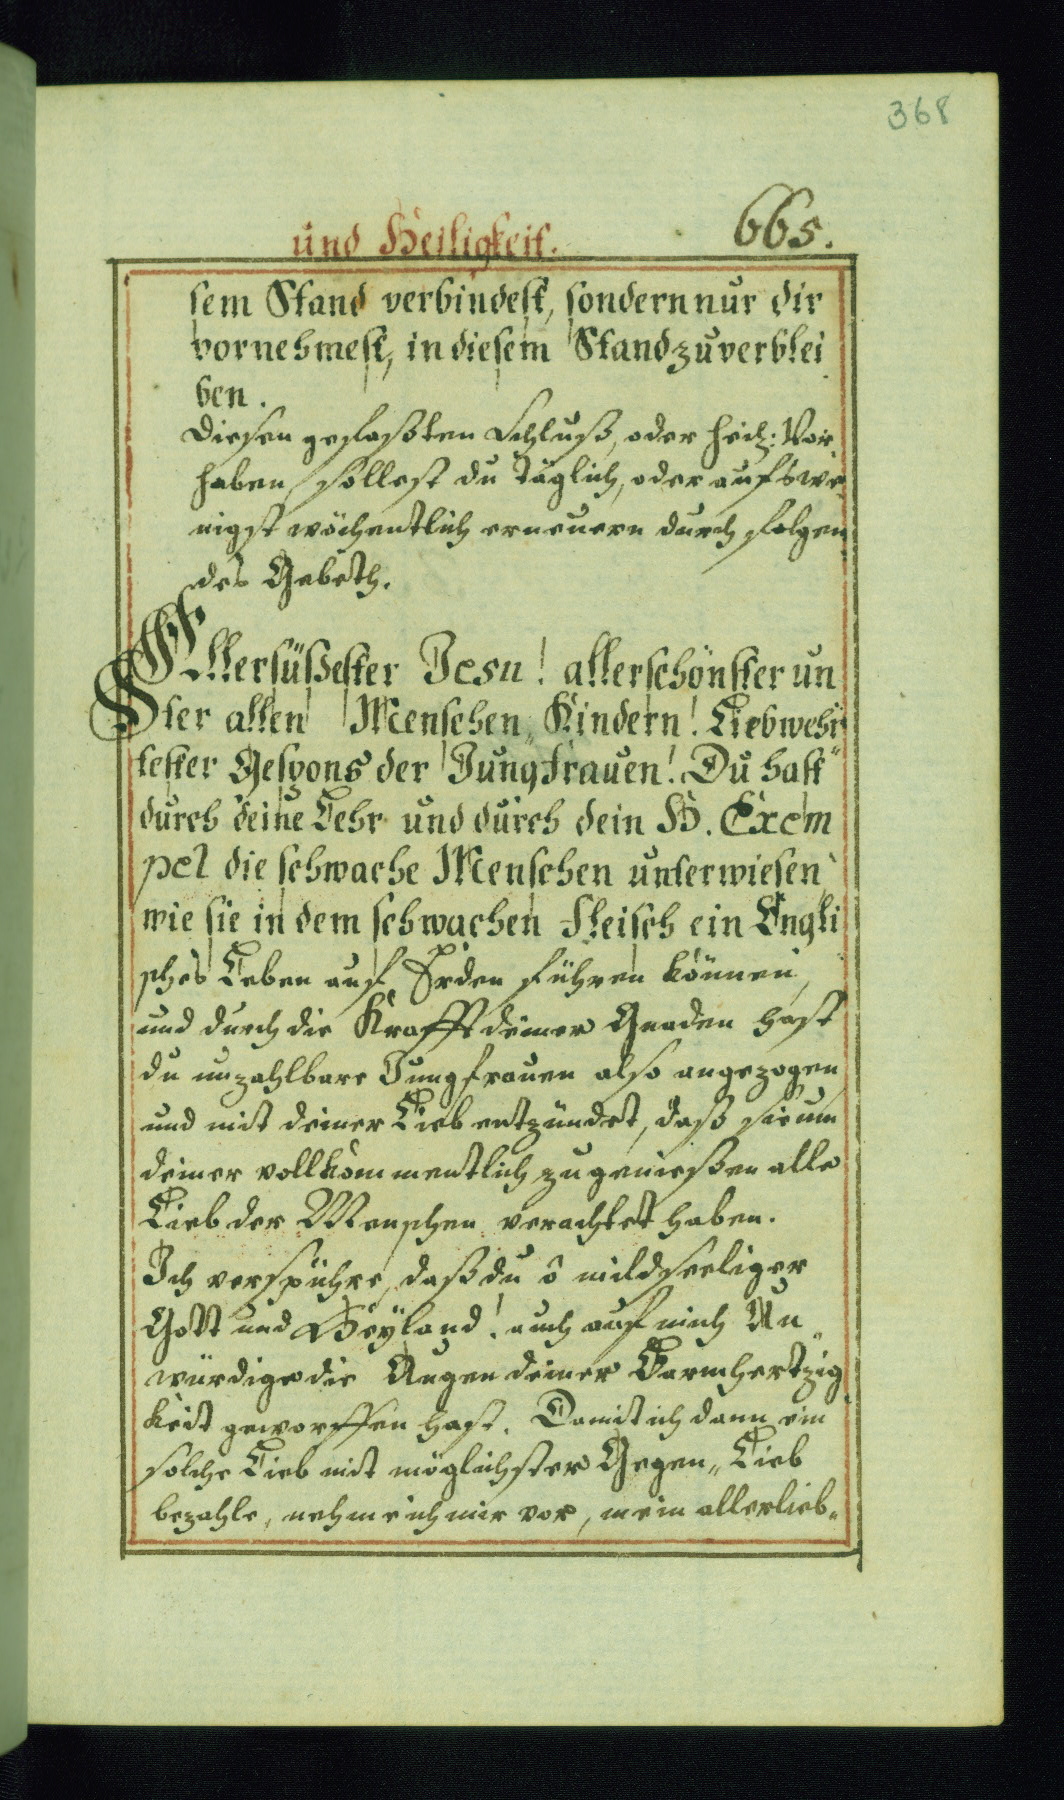 368
und Heiligkeit. 665.
sem Stand verbindest, sondern nur dir
vornehmest, in diesem Stand zu verblei
ben.
Diesen gefaßten Schluß, oder heil: Vor
haben sollest du täglich, oder aufs we„
nigst wöchentlich erneuern durch folgen„
des Gebeth.
Allersüßester Jesu! allerschönster un
ter allen Menschen„Kindern! Liebwehr
tester Gespons der Jungfrauen! Du hast
durch deine Lehr und durch dein H. Exem
pel die schwache Menschen unterwiesen
wie sie in dem schwachen Fleisch ein Engli
sches Leben auf Erden führen können,
und durch die Krafft deiner Gnaden hast
du unzahlbare Jungfrauen also angezogen
und mit deiner Lieb entzündet, daß sie um
deiner vollkommentlich zu genießen alle
Lieb der Menschen verachtet haben.
Ich verspühre, daß du ô mildseeliger
Gott und Heyland! auch auf mich Un„
würdige die Augen deiner Barmhertzig
keit geworffen hast. Damit ich dann ein
solche Lieb mit möglichster Gegen„Lieb
bezahle, nehme ich mir vor, mein allerlieb„